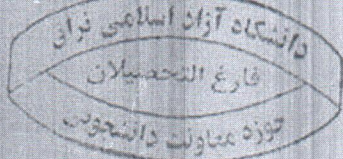 دانشگاه آزاد اسلامی
فارغ التحصیلان
حوزه معاونت دانشجویی